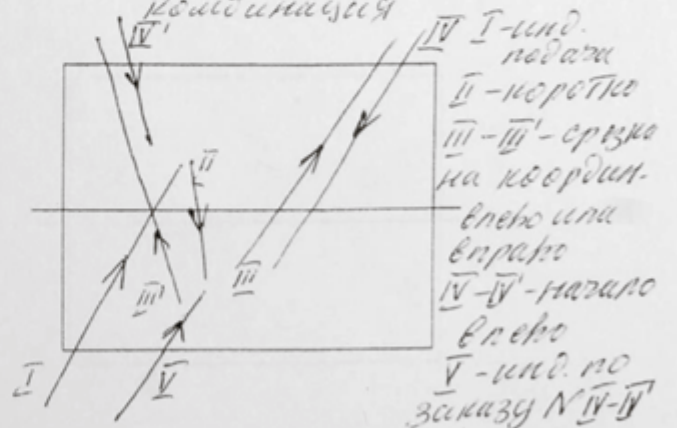 комбинация
IV'
IV
I-инд.
подача
II-коротко
III-III'-срезка
на координ.
влево или
вправо
IV-IV'-начало
влево
V-инд. по
заказу N IV-IV'
II
III'
III
I
V